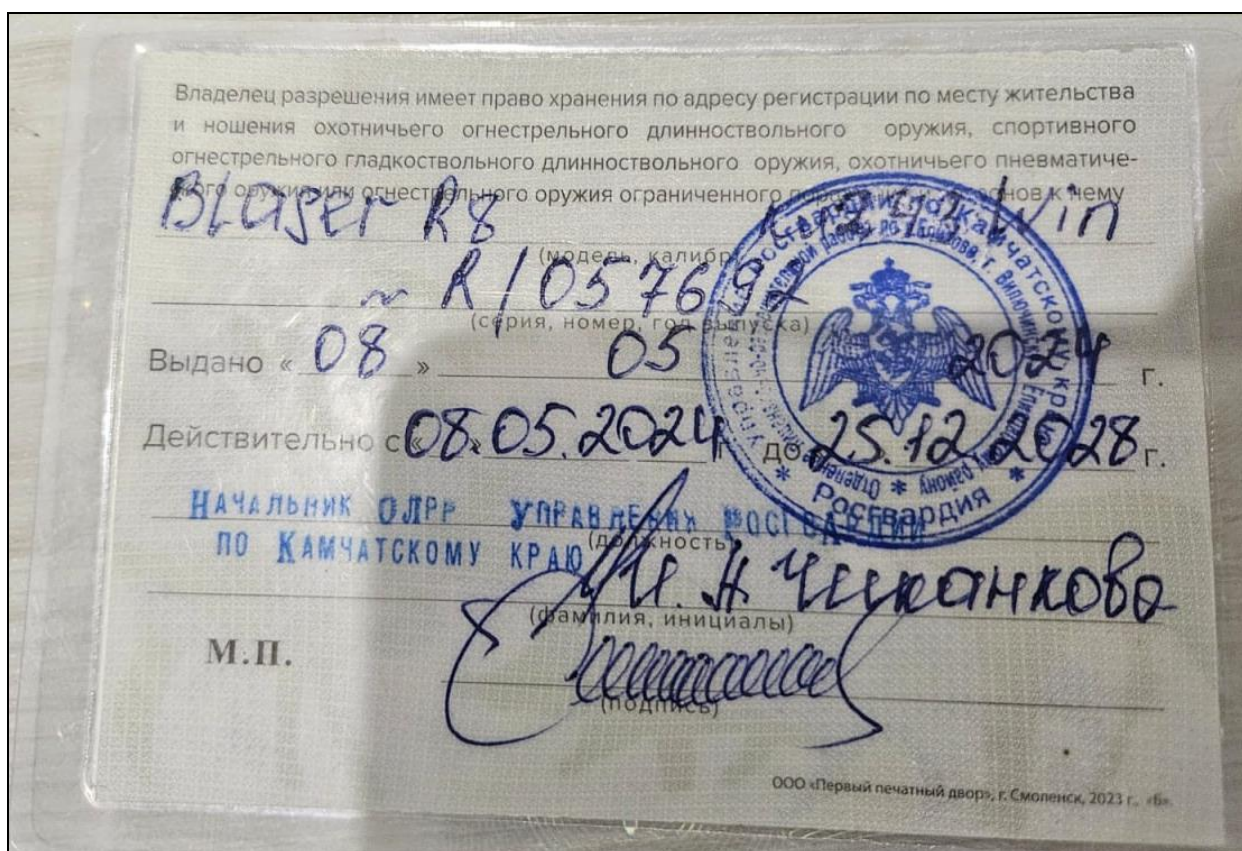 Владелец разрешения имеет право хранения по адресу регистрации по месту жительства
и ношения охотничьего огнестрельного длинноствольного оружия, спортивного
огнестрельного гладкоствольного длинноствольного оружия, охотничьего пневматиче-
ского оружия или огнестрельного оружия ограниченного поражения и патронов к нему
Blaser R8 Win
(модель, калибр)
~ R/057697
(серия, номер, год выпуска)
Выдано « 08 » 05 2024 г.
Действительно с « 08.05.2024 г. до 25.12.2028 г.
НАЧАЛЬНИК ОЛРР УПРАВЛЕНИЯ РОСГВАРДИИ
(должность)
ПО КАМЧАТСКОМУ КРАЮ
И.А Чиканкова
(фамилия, инициалы)
М.П.
(подпись)
ООО «Первый печатный двор», г. Смоленск, 2023 г., «Б».
Управление Росгвардии по Камчатскому краю
* Росгвардия *